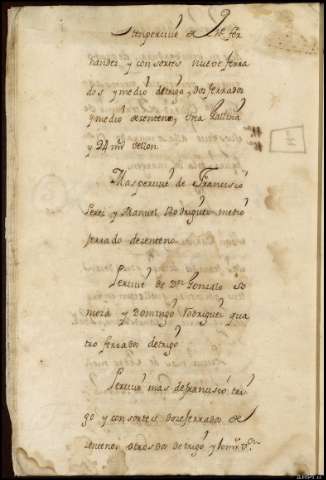 Iten percivè de Jhe fer
nandez y consortes nueve ferra
dos y medio detrigo, y dos ferrados
y medio desenteno, Una Gallina
y 24 mrs vellon
Mas percivè de Francisco
Perez y Manuel Rodriguez medio
ferrado desenteno
Percivè de Dn Gonzalo So
moza y Domingo Rodriguez qua
tro ferrados detrigo
Percivè mas defrancisco tri
go y consortes doze ferrados de
senteno otros dos de trigo y